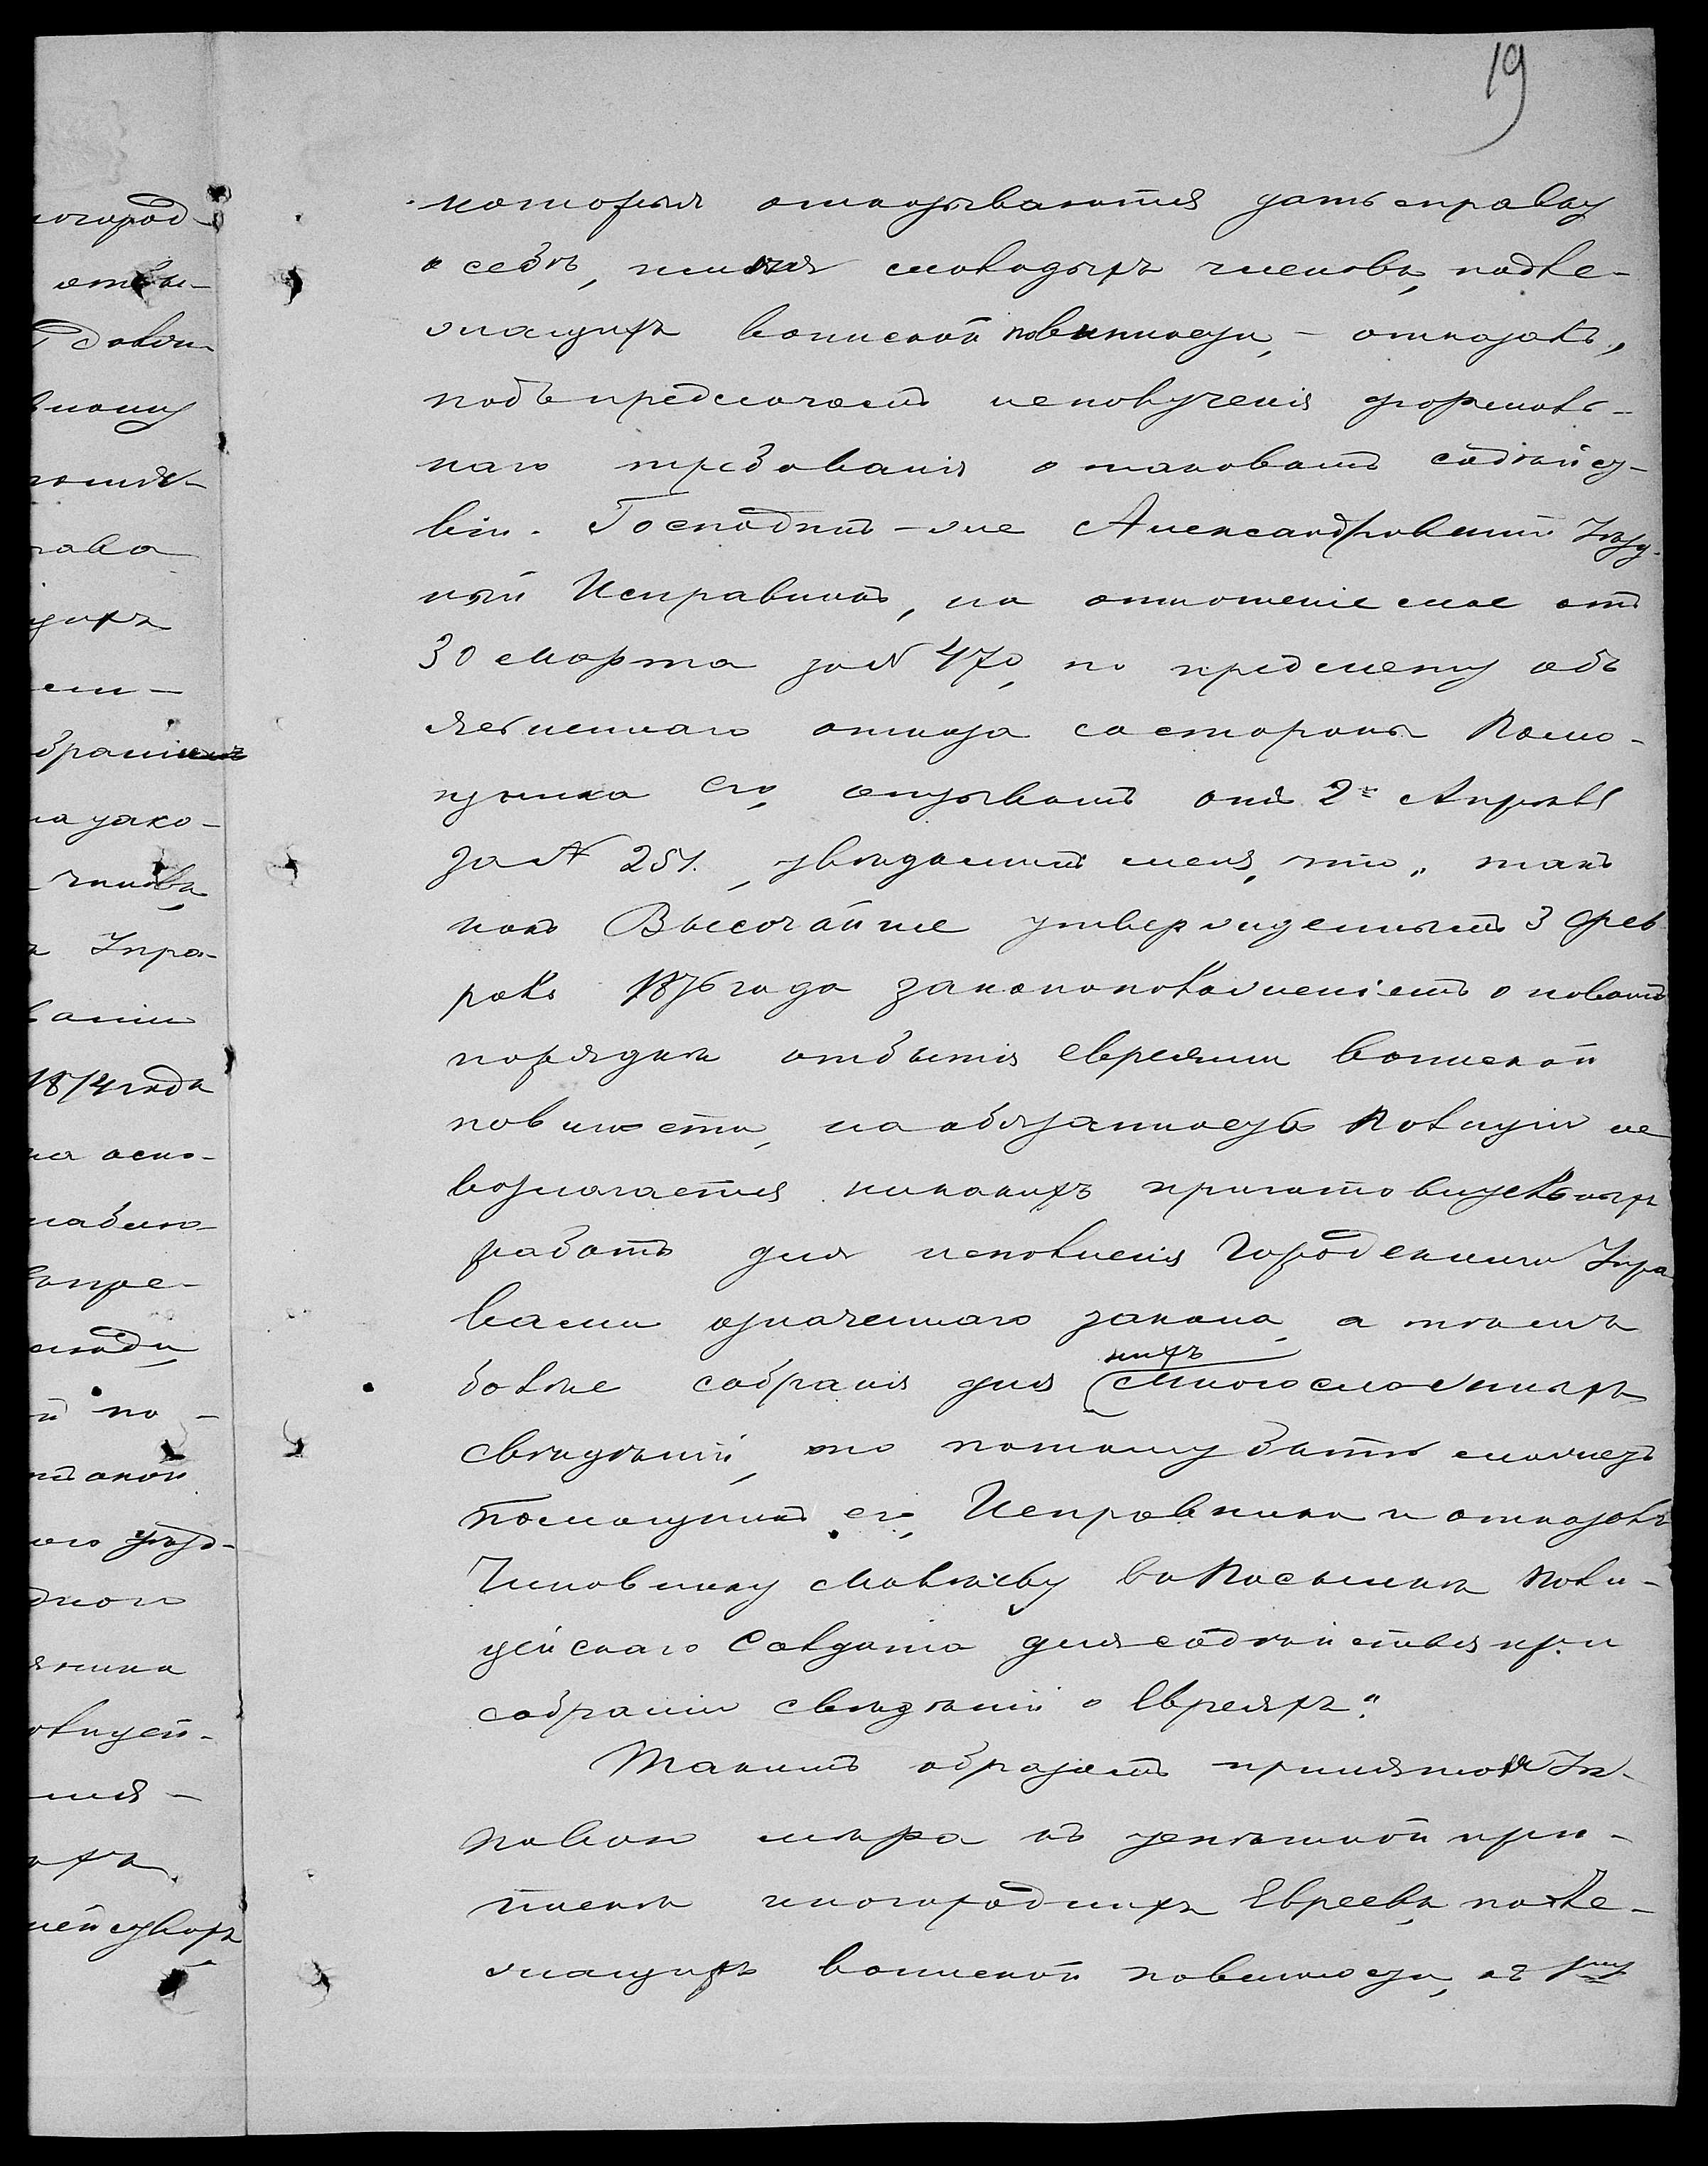 19
которыя отказываются дать справку
о себѣ, имѣя молодыхъ членовъ, подле-
жащихъ воинской повинности, — отказалъ,
подъ предлогомъ неполученія формаль-
наго требованія о таковомъ содѣйст-
віи. Господинъ-же Александровскій Уѣзд-
ный Исправникъ, на отношеніе мое отъ
30 Марта за № 470, по предмету объ-
ясненнаго отказа со стороны Помо-
щника его, отзывомъ отъ 2го Апрѣля
за № 251, увѣдомилъ меня, что „такъ
какъ Высочайше утвержденнымъ 3 Фев
раля 1876 года законоположеніемъ о новомъ
порядкѣ отбытія евреями воинской
повинности, на обязанность Полиціи не
возлагается никакихъ приготовительныхъ
работъ для исполненія Городскими Упра
вами означеннаго закона, а тѣмъ
болѣе собранія для нихъ многосложныхъ
свѣдѣній, то потому быть можетъ
Помощникъ его, Исправника и отказалъ
Чиновнику въ посылкѣ Поли-
цейскаго Солдата для содѣйствія при
собраніи свѣдѣній о Евреяхъ".
Такимъ образомъ принятая Уп-
равою мѣра къ успѣшной при-
пискѣ иногородныхъ Евреевъ, подле-
жащихъ воинской повинности, къ 1му